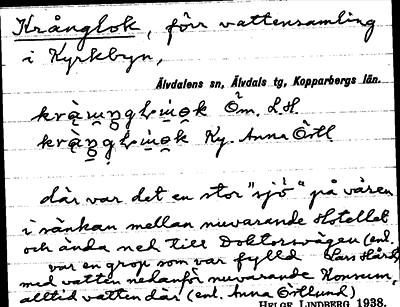 Krånglok, förr vattensamling
i Kyrkbyn,
Älvdalens sn, Älvdals tg, Kopparbergs län.
Öm. L.H.
Ky. Anna Östl
där var det en stor "sjö" på våren
i sänkan mellan nuvarande Hotellet
och ända ned till Doktorsvägen (enl.
var en grop som var fylld Lars Hård)
med vatten nedanför nuvarande Konsum,
alltid vatten där (enl. Anna Östlund)
HELGE LINDBERG 1938.